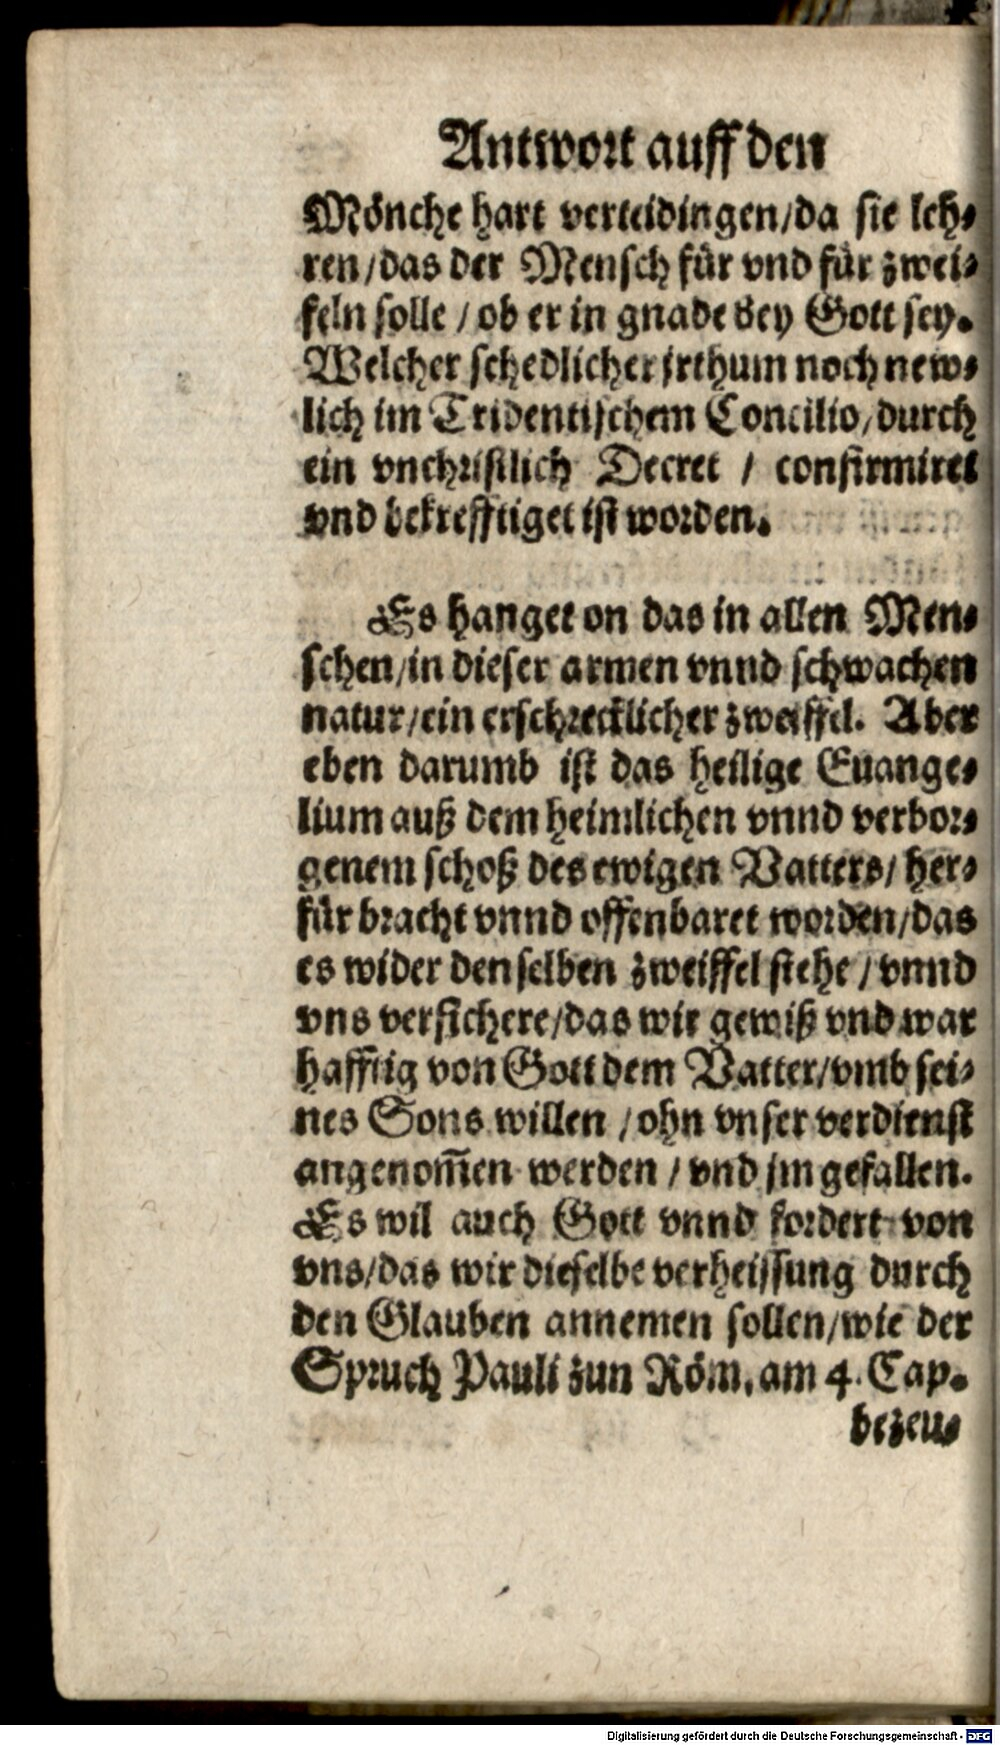 Antwort auff den
Mönche hart verteidingen/da sie leh⸗
ren/das der Mensch für vnd für zwei⸗
feln solle / ob er in gnade bey Gott sey.
Welcher schedlicher jrthum noch new⸗
lich im Tridentischem Concilio/durch
ein vnchristlich Decret / confirmiret
vnd bekrefftiget ist worden.
Es hanget on das in allen Men⸗
schen/in dieser armen vnnd schwachen
natur/ein erschrecklicher zweiffel. Aber
eben darumb ist das heilige Euange⸗
lium auß dem heimlichen vnnd verbor⸗
genem schoß des ewigen Vatters/ her⸗
für bracht vnnd offenbaret worden/das
es wider denselben zweiffel stehe / vnnd
vns versichere/das wir gewiß vnd war
hafftig von Gott dem Vatter/vmb sei⸗
nes Sons willen / ohn vnser verdienst
angenom̃en werden / vnd jm gefallen.
Es wil auch Gott vnnd fordert von
vns/das wir dieselbe verheissung durch
den Glauben annemen sollen/wie der
Spruch Pauli zun Röm. am 4. Cap.
bezeu⸗
Digitalisierung gefördert durch die Deutsche Forschungsgemeinschaft - DFG